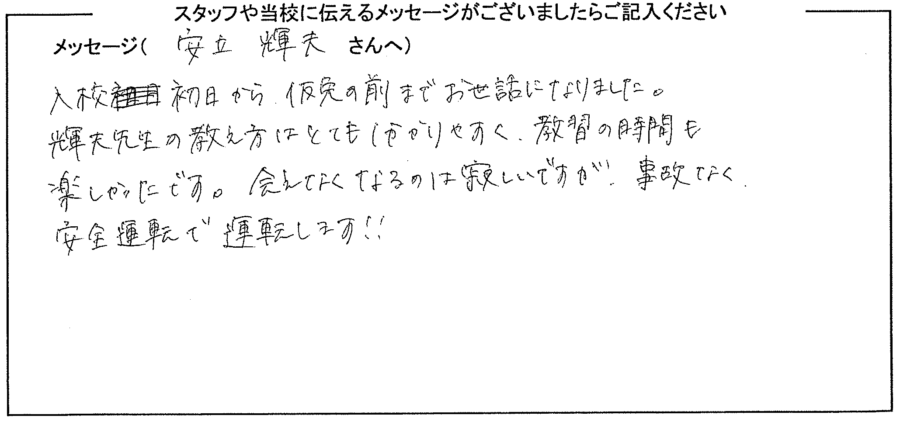 スタッフや当校に伝えるメッセージがございましたらご記入ください
メッセージ( 安立 輝夫 さんへ)
入校初日から、仮免の前までお世話になりました。
輝夫先生の教え方はとても分かりやすく、教習の時間も
楽しかったです。会えなくなるのは寂しいですが、事故なく、
安全運転で運転します!!